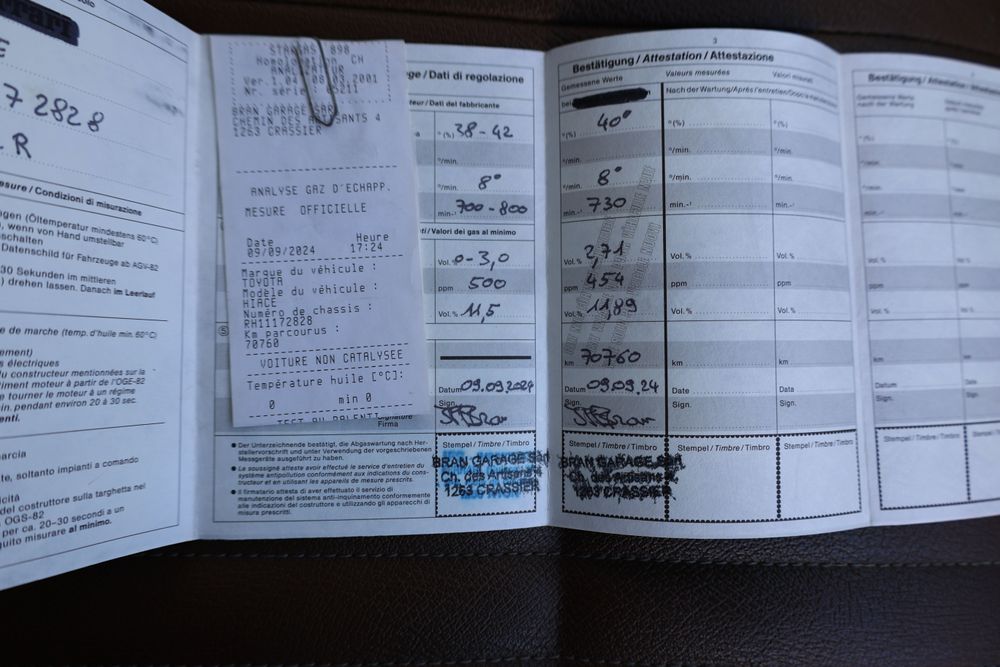 E
72828
R
Condizioni di misurazione
gen (Öltemperatur mindestens 60°C)
, wenn von Hand umstellbar
schalten
Datenschild für Fahrzeuge ab AGV-82
30 Sekunden im mittleren
) drehen lassen. Danach im Leerlauf
e de marche (temp. d'huile min. 60°C)
ement)
s électriques
du constructeur mentionnées sur la
timent moteur à partir de l'OGE-82
e tourner le moteur à un régime
in. pendant environ 20 à 30 sec.
enti.
arcia
e, soltanto impianti a comando
icità
del costruttore sulla targhetta nel
OGS-82
per ca. 20-30 secondi a un
guito misurare al minimo.
STARGAS 898
Homologation CH
ANALYSEUR
Ver.1.04 08.03.2001
BRAN GARAGE SARL
CHEMIN DES ARTISANTS 4
1263 CRASSIER
ANALYSE GAZ D'ECHAPP.
MESURE OFFICIELLE
Date Heure
09/09/2024 17:24
Marque du véhicule :
TOYOTA
Modèle du véhicule :
HIACE
Numéro de chassis :
RH11172828
Km parcourus :
70760
VOITURE NON CATALYSEE
Température huile [°C]:
0 min 0
TEST AU RALENTI
ge / Dati di regolazione
teur / Dati del fabbricante
°(%) 38-42
°/min.
8°
min.-¹ 700-800
ti / Valori dei gas al minimo
Vol.% 0-3,0
ppm 500
Vol.% 11,5
Datum 09.09.2024
Sign.
Signature
Firma
Der Unterzeichnende bestätigt, die Abgaswartung nach Her-
stellervorschrift und unter Verwendung der vorgeschriebenen
Messgeräte ausgeführt zu haben.
Le soussigné atteste avoir effectué le service d'entretien du
système antipollution conformément aux indications du cons-
tructeur et en utilisant les appareils de mesure prescrits.
Il firmatario attesta di aver effettuato il servizio di
manutenzione del sistema anti-inquinamento conformemente
alle indicazioni del costruttore e utilizzando gli apparecchi
di misura prescritti.
Stempel / Timbre / Timbro
BRAN GARAGE Sàrl
Ch. des Artisans 4
1263 CRASSIER
3
Bestätigung / Attestation / Attestazione
Gemessene Werte Valeurs mesurées Valori misurati
bei
Nach der Wartung/Après l'entretien/Dopo la manutenzione
°(%) 40° °(%) °(%)
°/min. °/min. °/min.
8°
min.-¹ 730 min.-¹ min.-¹
Vol.% 2,71 Vol.% Vol.%
ppm 454 ppm ppm
Vol.% 11,89 Vol.% Vol.%
km 70760 km km
Datum 09.09.24 Date Data
Sign. Sign. Sign.
Stempel / Timbre / Timbro Stempel / Timbre / Timbro
BRAN GARAGE Sàrl
Ch. des Artisans 4
1263 CRASSIER
Bestätigung / Attestation /
Gemessene Werte
nach der Wartung
°(%) °(%)
°/min.
min.-¹
Vol.%
ppm
Vol.%
km km
Datum Date
Sign. Sign.
Stempel / Timbre / Timbro